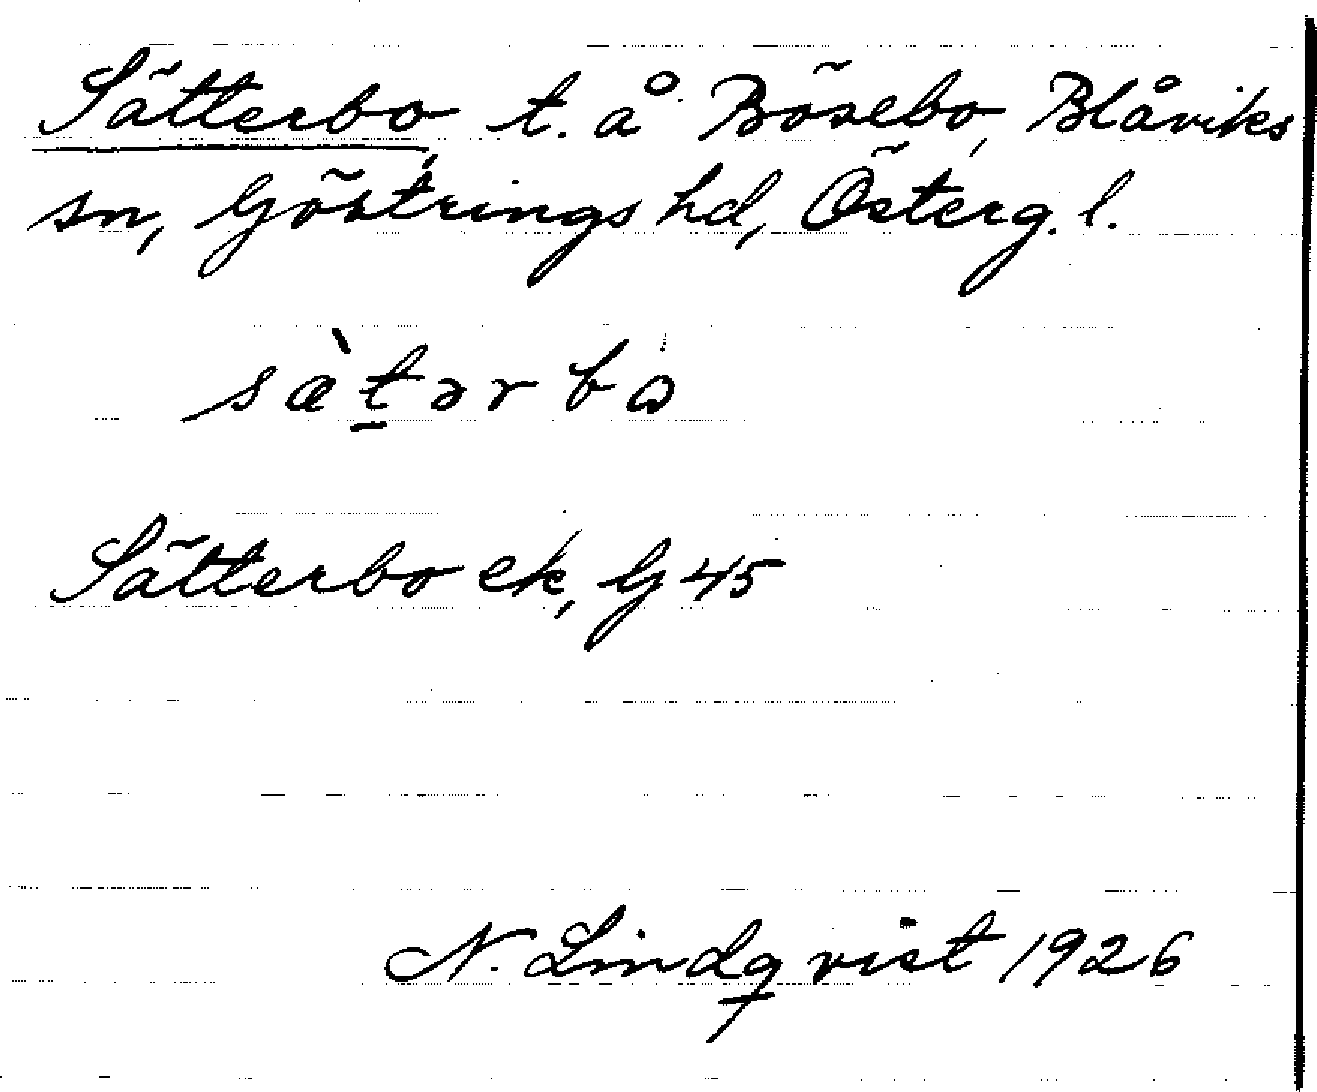 Sätterbo t. å Bösebo, Blåviks
sn, Göstrings hd, Österg. l.
sæ̀t̠ərbω
Sätterbo ek, G 45
N. Lindqvist 1926